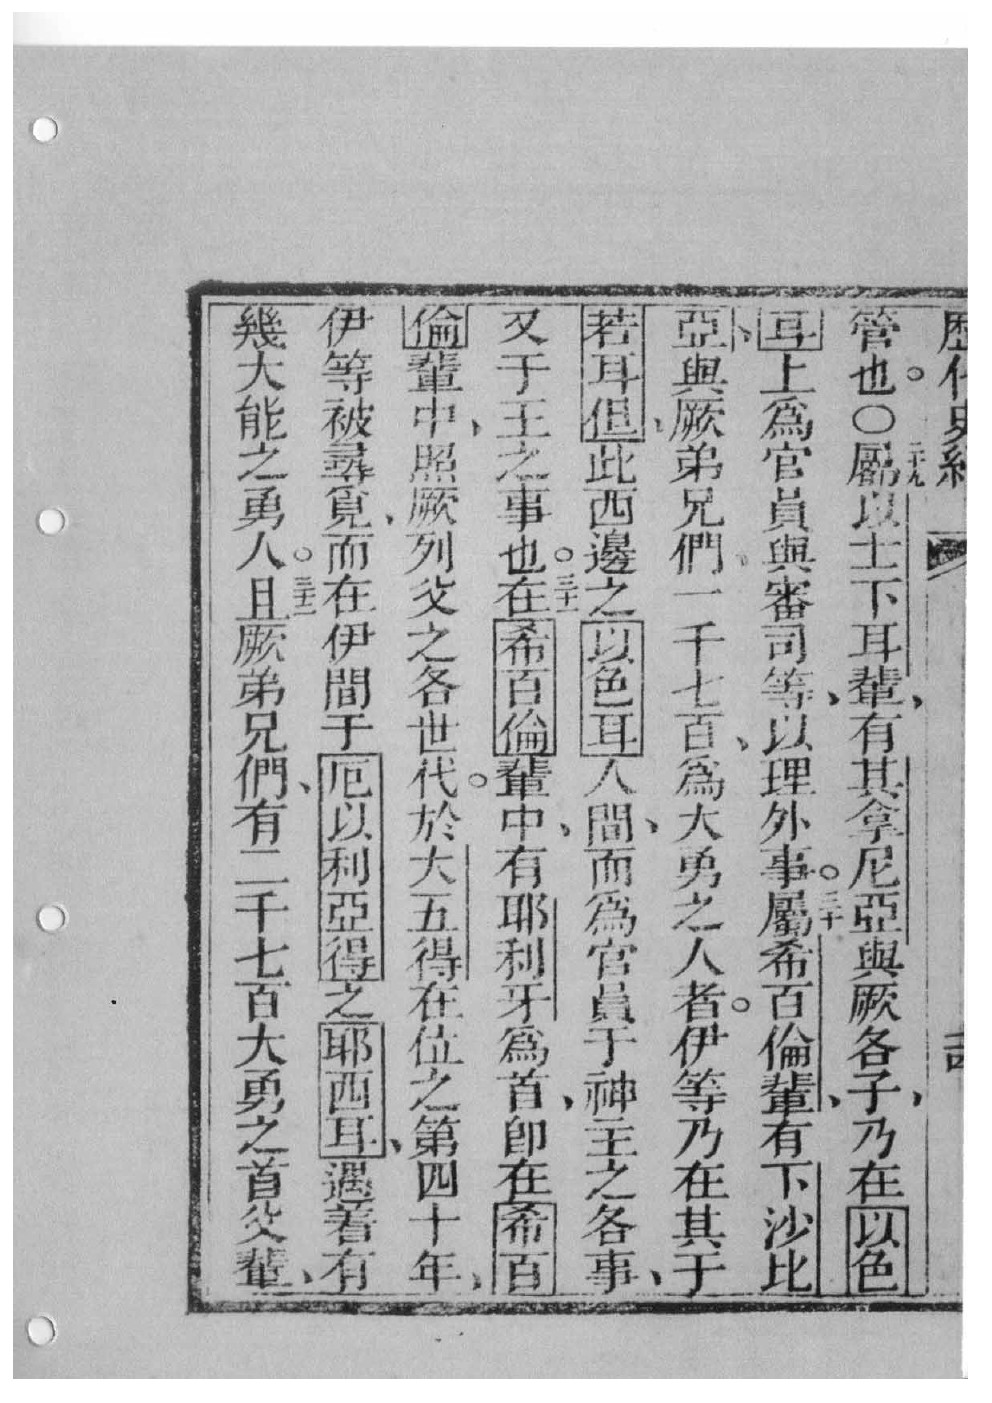 歷代史紀
管也。○二十九屬以士下耳輩、有其拿尼亞與厥各子、乃在以色
耳上爲官員與審司等、以理外事。三十屬希百倫輩、有下沙比
亞與厥弟兄們一千七百、爲大勇之人者。伊等乃在其于
若耳但此西邊之以色耳人間、而爲官員于神主之各事、
又于王之事也。三十一在希百倫輩中、有耶利牙爲首、卽在希百
倫輩中、照厥列父之各世代。於大五得在位之第四十年、
伊等被尋覓、而在伊間于厄以利亞得之耶西耳、遇着有
幾大能之勇人。三十二且厥弟兄們、有二千七百大勇之首父輩、